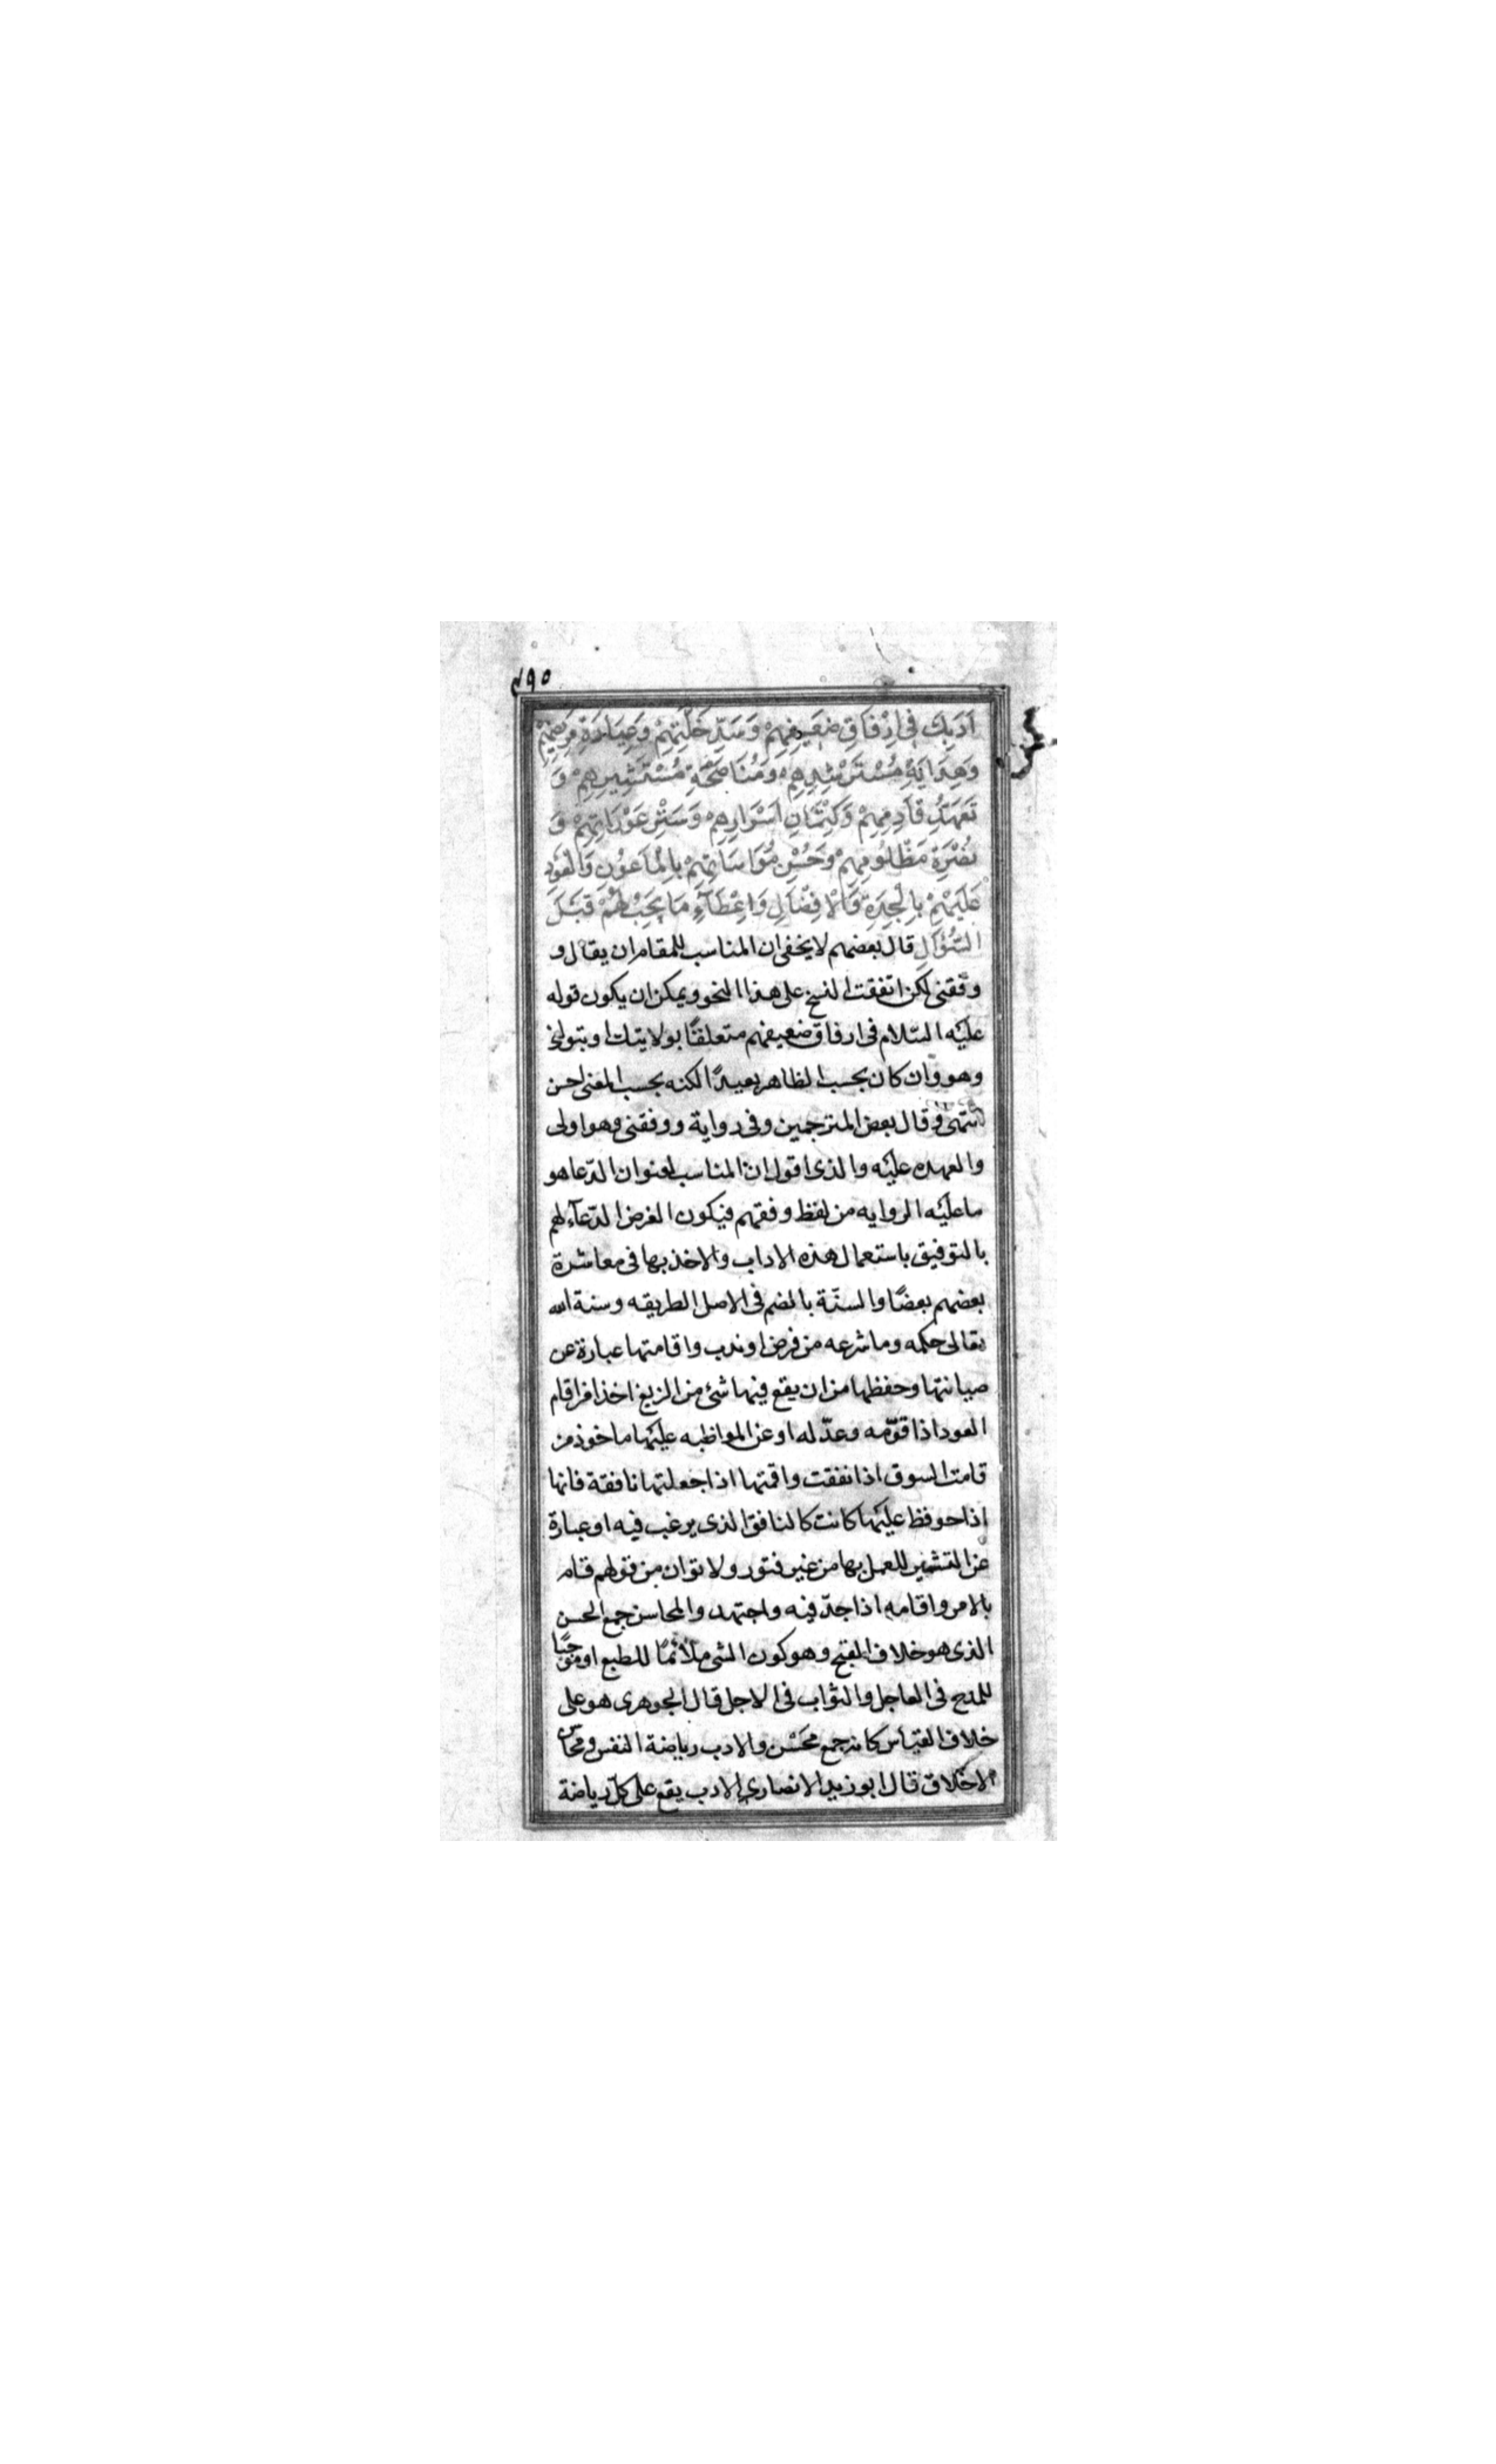 ٤٩٥
اَدَبِكَ فِى اِرْفَاقِ ضَعِيفِهِمْ وَسَدِّ خَلَّتِهِمْ وَعِيَادَةِ مَرِيضِهِمْ
وَهِدَايَةِ مُسْتَرْشِدِهِمْ وَمُنَاصَحَةِ مُسْتَشِيرِهِمْ وَ
تَعَهُّدِ قَادِمِهِمْ وَكِتْمَانِ اَسْرَارِهِمْ وَسَتْرِ عَوْرَاتِهِمْ وَ
نُصْرَةِ مَظْلُومِهِمْ وَحُسْنِ مُوَاسَاتِهِمْ بِالْمَاعُونِ وَالْعَوْدِ
عَلَيْهِمْ بِالْجِدَةِ وَالْاِفْضَالِ وَاِعْطَآءِ مَا يَجِبُ لَهُمْ قَبْلَ
السُّؤَالِ قال بعضهم لا يخفى ان المناسب للمقام ان يقال و
وفقنى لكن اتفقت النسخ على هذا النحو ويمكن ان يكون قوله
عليه السّلام فى ارفاق ضعيفهم متعلقًا بولايتك او بتولنى
وهو وان كان بحسب الظاهر بعيدًا لكنه بحسب المعنى احسن
انتهى وقال بعض المترجمين وفى رواية ووفقنى وهو اولى
والعهده عليه والذى اقول ان المناسب لعنوان الدّعا هو
ما عليه الروايه من لفظ وفقهم فيكون الغرض الدّعآء لهم
بالتوفيق باستعمال هذه الاداب والاخذ بها فى معاشرة
بعضهم بعضًا والسنّة بالضم فى الاصل الطريقه وسنة الله
تعالى حكمه وما شرعه من فرض او ندب واقامتها عبارة عن
صيانتها وحفظها من ان يقع فيها شئ من الزيغ اخذا من اقام
العود اذا قوّمه وعدّله او عن المواظبه عليها ماخوذ من
قامت السوق اذا نفقت واقمتها اذا جعلتها نافقة فانها
اذا حوفظ عليها كانت كالنافق الذى يرغب فيه او عبارة
عن التشمير للعمل بها من غير فتور ولا توان من قولهم قام
بالامر واقامه اذا جدّ فيه واجتهد والمحاسن جمع الحسن
الذى هو خلاف القبح وهو كون الشى ملائمًا للطبع او موجبًا
للمدح فى العاجل والثواب فى الاجل قال الجوهرى هو على
خلاف القياس كانه جمع محسن والادب رياضة النفس ومحاسن
الاخلاق قال ابو زيد الانصارى الادب يقع على كلّ رياضة